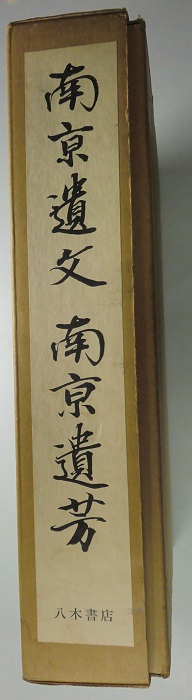 南京遺文 南京遺芳
八木書店